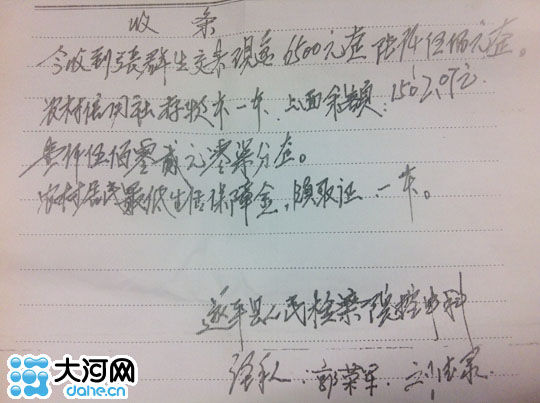 收 条
今收到張群生交来现金6500元整 陆仟伍佰元整。
农村信用社存折本一本.上面余额:1502.07元.
壹仟伍佰零贰元零柒分整。
农村居民最低生活保障金,领取证.一本。
遂平县人民检察院控申科
经手人:郭荣军.
大河网
dahe.cn